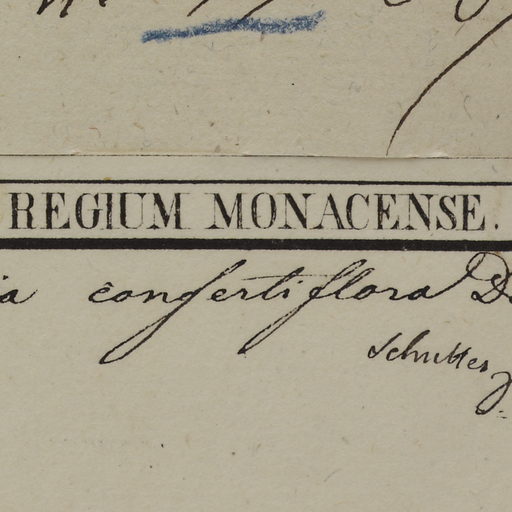 REGIUM MONACENSE.
ia confertiflora D
Schultes